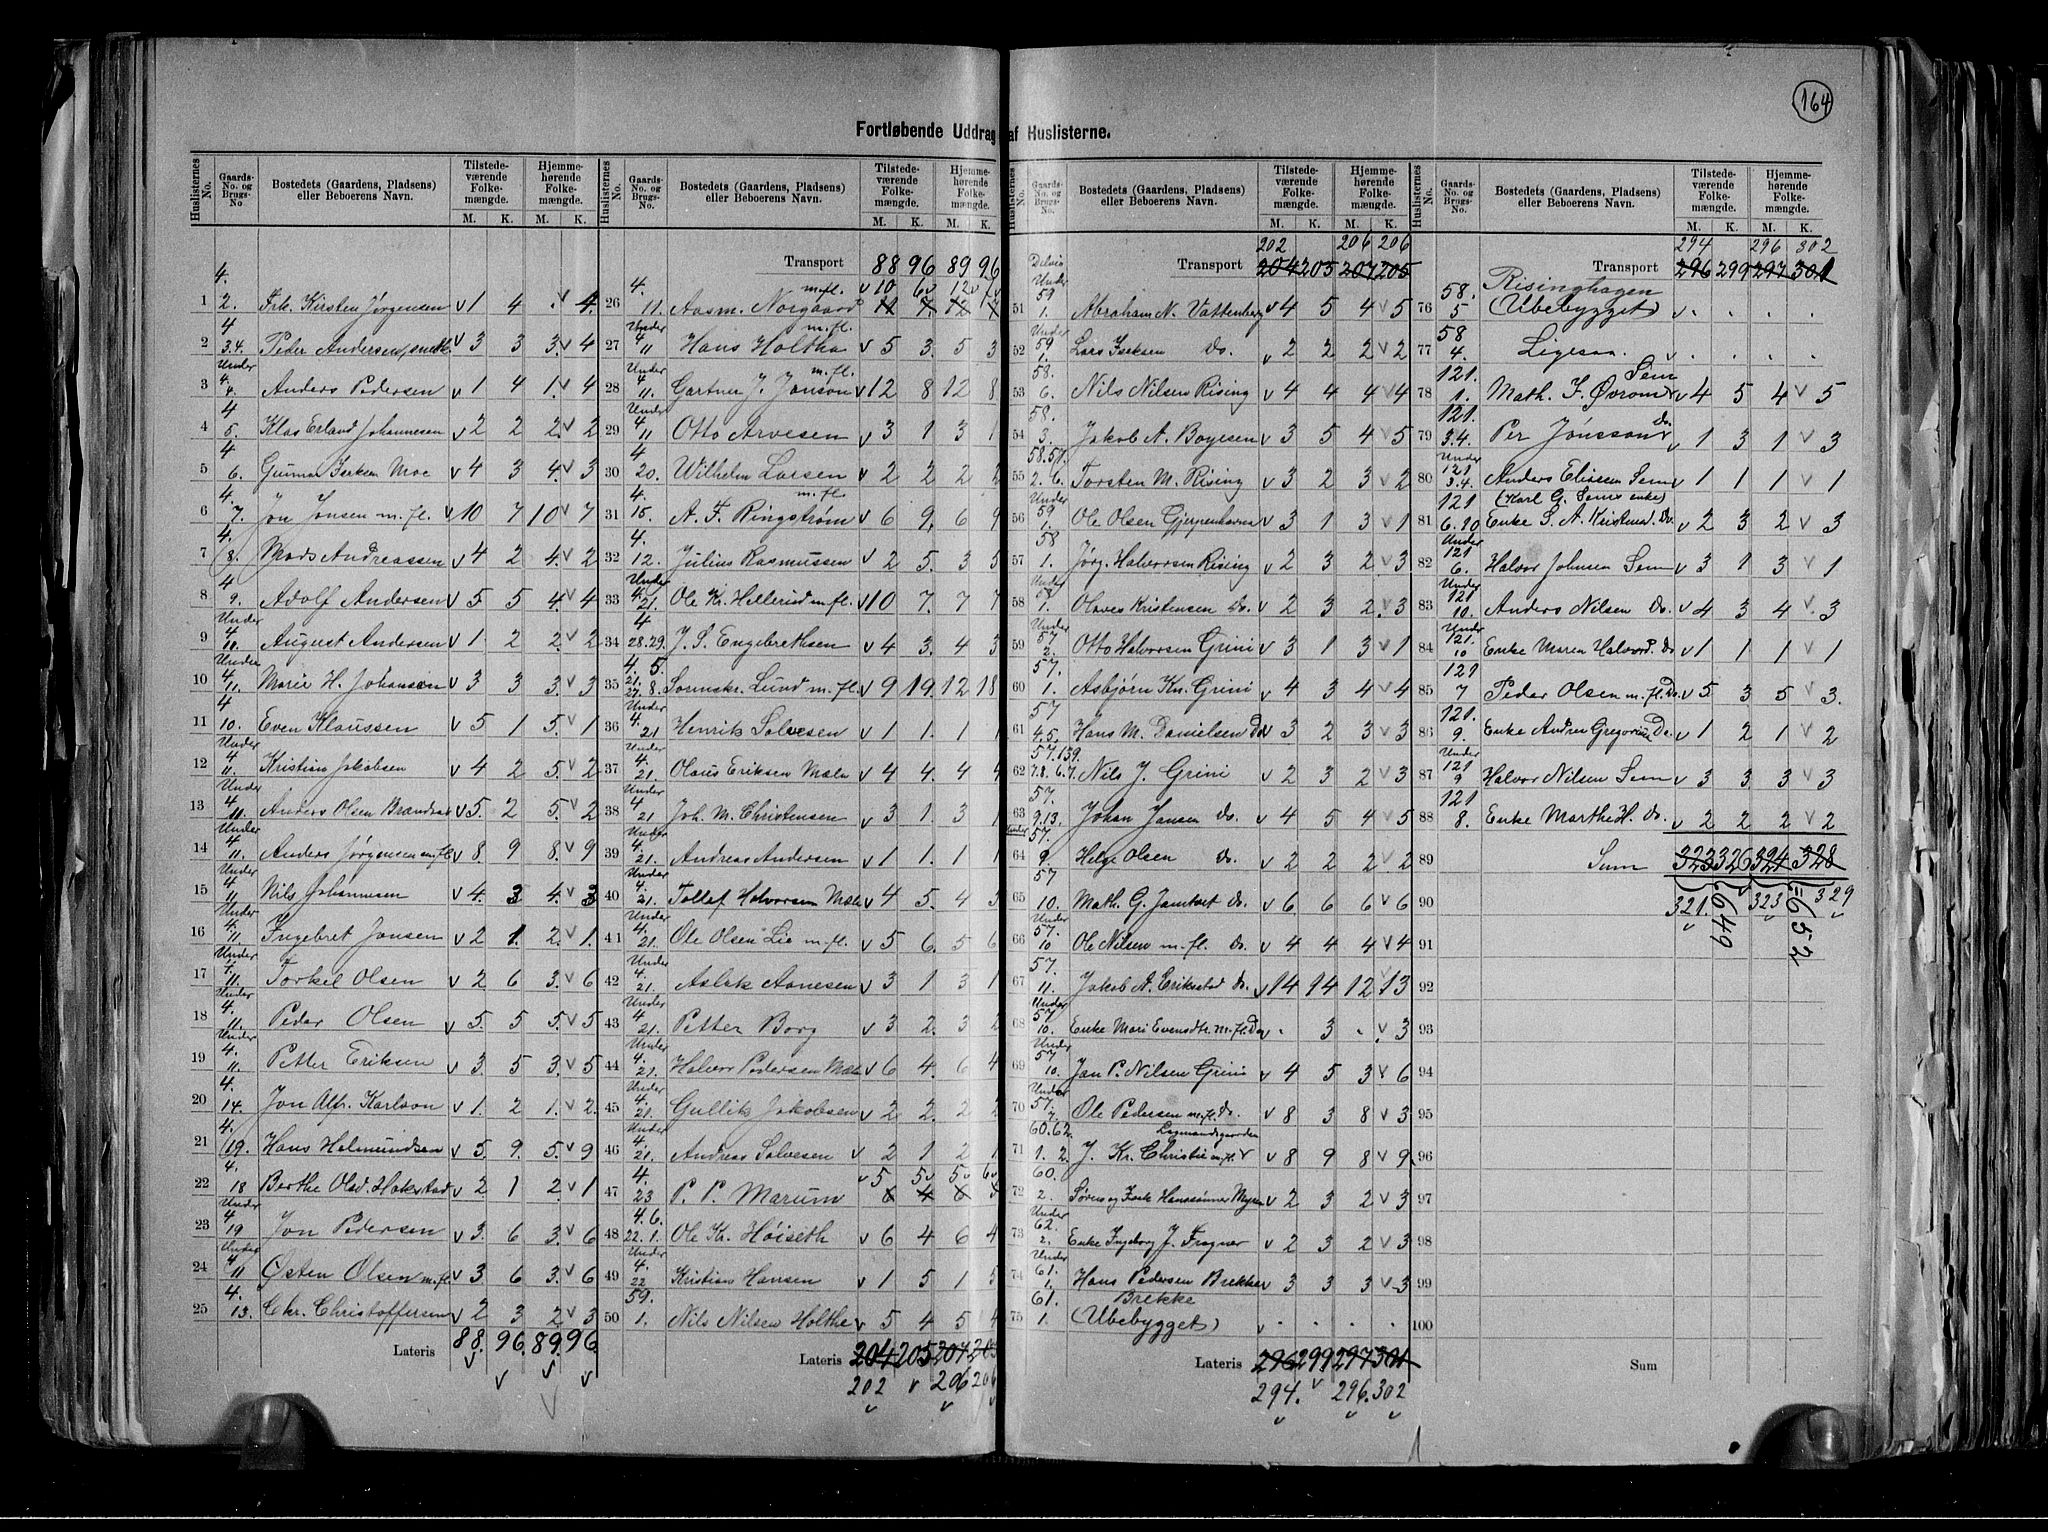 164
Fortløbende Uddrag af Huslisterne.
Huslisternes No. Gaards-No. og Brugs-No. Bostedets (Gaardens, Pladsens) eller Beboerens Navn. Tilstedeværende Folkemængde. M. K. Hjemmehørende Folkemængde. M. K.
1 4. 2. Frk. Kirsten Jørgensen v 1 4 . v 4.
2 4 3.4. Peder Andersen v 3 3 3. v 4
3 Under 4. 4. Anders Pedersen v 1 4 1. v 4
4 4 5. Klas Erland Johannesen v 2 2 2. v 2
5 4 6. Gunnar Isaksen Moe v 4 3 4. v 3
6 4. 7. Jon Jonsen m. fl. v 10 7 10 v 7
7 4. 8. Mads Andreassen v 4 2 4. v 2
8 4 9. Adolf Andersen v 5. 5 4. v 4
9 Under 4 10. August Andersen v 1. 2 2. v 2
10 Under 4 11. Marie H. Johansen v 3 3 3. v 3
11 4 10. Even Klaussen v 5 1 5. v 1
12 Under 4 11. Kristian Jakobsen v 4 2 5. v 2
13 Under 4 11. Anders Olsen v 5. 2 5. v 2
14 Under 4 11. Anders Jørgensen m. fl. v 8. 9 8. v 9
15 Under 4 11 Nils Johannesen v 4. 3 4. v 3
16 Under 4. 11 Ingebret Jonsen v 2 1. 2. v 1.
17 Under 4. 11. Torkel Olsen v 2 6 3. v 6
18 Under 4. 11. Peder Olsen v 5. 5 5. v 5
19 Under 4. 11. Petter Eriksen v 3. 5 3. v 5
20 4. 14. Jon Alfr. Karlson v 1. 2 1. v 2.
21 4. 19. Hans Halmundsen v 5. 9. 5. v 9
22 4. 18 Berthe Olsd. Hakstad v 2 1 2. v 1
23 Under 4 19 Jon Pedersen v 3. 6 3. v 6
24 Under 4 11 Østen Olsen m. fl. v 3. 6 3. v 6
25 4. 13. Chr. Christoffersen v 2 3 2. v 3
Lateris 88. 96. 89. 96.
Transport 88 96 89 96
26 4. 11. Aasm. Norgaard m. fl. v 10 6 v 12 v 11 7. 12
27 Under 4 11 Hans Holtha m. fl. v 5 3. 5 3
28 Under 4 11. Gartner J. Jonson m. fl. v 12 8 12 8
29 Under 4 11 Otto Arvesen v 3 1 3 1
30 4 20. Wilhelm Larsen v 2 2 2 2
31 4. 15. A. F. Ringstrøm m. fl. v 6 9. 6 9
32 4. 12. Julius Rasmussen v 2 5. 3 5
33 Under 4. 21. Ole Kr. Hellerud m. fl. v 10 7. 7 7
34 4 28.29. J. S. Engebrethsen v 4 3. 4 3
35 4. 5. 21. 27. 8. Sorenskr. Lund m. fl. v 9 19. 12 18
36 Under 4. 21 Henrik Solvesen v 1 1. 1 1
37 Under 4. 21. Olaus Eriksen Mæla v 4 4. 4 4
38 Under 4 21 Joh. M. Christensen v 3 1. 3 1
39 Under 4. 21. Andreas Andersen v 1 1. 1 1
40 Under 4. 21. Tollef Halvorsen Mæla v 4 5. 4 5
41 Under 4. 21. Ole Olsen Lie m. fl. v 5 6. 5 6
42 Under 4. 21. Aslak Aanesen v 3 1 3 1
43 Under 4. 21. Petter Borg v 3 2. 3 2
44 Under 4. 21. Halvor Pedersen Mæla v 6 4. 6 4
45 Under 4. 21. Gullik Jakobsen v 2 2. 2 2
46 Under 4. 21. Andreas Solvesen v 2 1 2 1
47 4. 23 P. P. Marum v 5 5 v 5 v 6 v 6 4 6 5
48 4. 6. 22. 1. Ole Kr. Høiseth v 6 4 6 4
49 Under 4. 22 Kristian Hansen v 1 5 1 5
50 59. 1. Nils Nilsen Holthe v 5 4 5 4
Lateris 204 205 207 205
202 v 206 206
202 206 206
Transport 204 205 207 205
51 Under 59 1. Abraham N. Vattenberg v 4 5 4 v 5
52 Under 59 1. Lars Isaksen Do. v 2 2 2 v 2
53 58. 6. Nils Nilsen Rising v 4 4 4 v 4
54 58. 3. Jakob A. Boyesen v 3 5 4 v 5
55 58. 57. 2. 6. Torsten M. Rising v 3 2 3 v 2
56 Under 59 1. Ole Olsen Gjerpenhavna v 3 1 3 v 1
57 58 1. Jørg. Halvorsen Rising v 2 3 2 v 3
58 Under 58 1. Olaves Kristensen Do. v 2 3 2. v 3
59 Under 57 2. Otto Halvorsen Grini v 3 1 3 v 1
60 57. 1. Asbjørn Kn. Grini v 4 3 4 v 4
61 57 4.5. Hans M. Danielsen Do v 3 2 3 v 3
62 57. 139. 7.8. 6.7. Nils J. Grini v 2 3 2 v 3
63 57. 9.13. Johan Jansen Do. v 4 5 4 v 5
64 Under 57. 9. Helge Olsen Do. v 2 2 2. v 2
65 57 10. Math. G. Jamtvet Do. v 6 6 6 v 6
66 Under 57. 10 Ole Nilsen m. fl. Do. v 4 4 4 v 4
67 57. 11. Jakob A. Eriksstad Do. v 14 14 12 v 13
68 Under 57 10. Enke Mari Evensdtr. m. fl. Do v . 3 . v 3
69 Under 57 10. Jan P. Nilsen Grini v 4 5 3 v 6
70 Under 57. 7. Ole Pedersen m. fl. Do. v 8 3 8 v 3
71 60. 62. 1. 2. J. Kr. Christie m. fl. Lagmandsgaarden v 8 9 8 v 9
72 60. 2. Søren og Isak Hanssønner Myren v 2 3 2 v 3
73 Under 62. 2. Enke Ingeborg J. Fragner v 2 3 2 v 3
74 Under 61. 1. Hans Pedersen Brekka v 3 3 3 v 3
75 61. 1. Brekke (Ubebygget) v . . . .
Lateris 296 299 297 301
294. v 296. 302
294 296 302
Transport 296 299 297 301
76 58. 5 Risinghagen (Ubebygget) v . . . .
77 58 4. Ligesaa. v . . . .
78 121. 1. Math. F. Øvrom Sem v 4 5 4 v 5
79 121. 3.4. Per Jónsson Do. v 1 3 1 v 3
80 Under 121 3.4. Anders Eliassen Sem v 1 1 1 v 1
81 121 6. 10 (Karl G. Sems enke) Enke S. A. Kristensd. Do. v 2 3 2 v 3
82 Under 121 6. Halvor Johnsen Sem v 3 1 3 v 1
83 Under 121 10. Anders Nilsen Do. v 4 3 4 v 3
84 Under 121. 10 Enke Maren Halvord. Do. v 1 1 1 v 1
85 121 7 Peder Olsen m. fl. Do. v 5 3 5 v 3.
86 121. 9. Enke Andrea Gregorine Do. v 1 2 1 v 2
87 Under 121 9 Halvor Nilsen Sem v 3 3. 3 v 3
88 121 8. Enke Marthe H. Do. v 2 2 2 v 2
89 Sum 323 326 324 328
90 321. 649 323 = 652 329
91
92
93
94
95
96
97
98
99
100
Sum